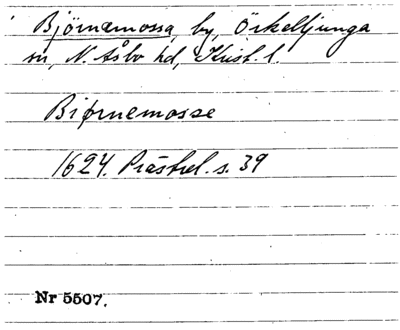 Björnamossa, by, Örkelljunga
sn, N. Åsbo hd, Krist. l.
Biørnemosse
1624. Prästrel. s. 39
Nr 5507.